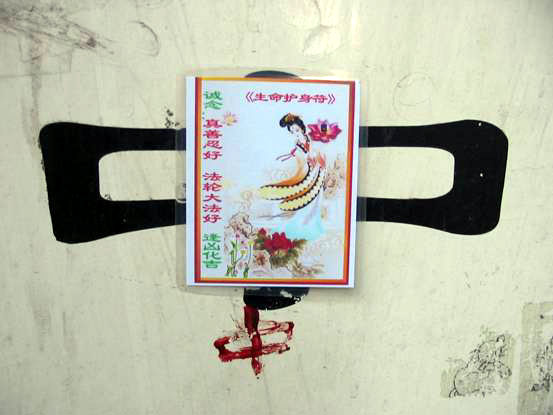 《生命护身符》
诚念 真善忍好 法轮大法好 逢凶化吉
中